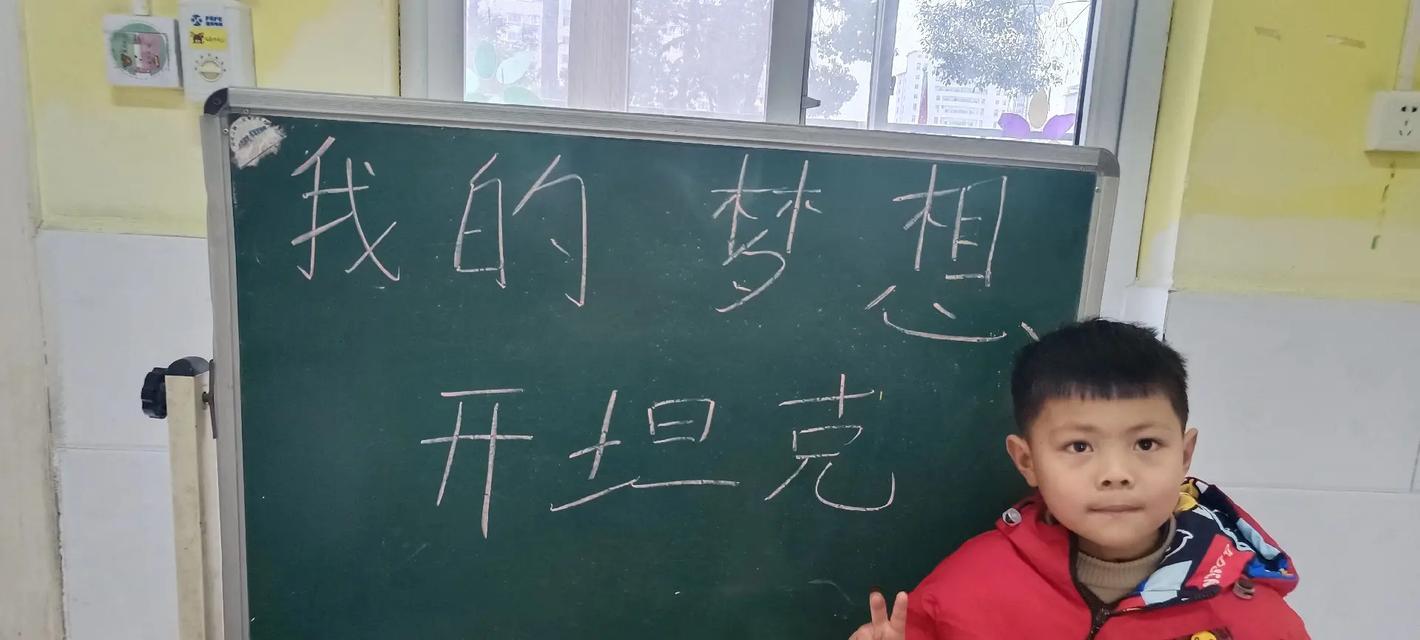 我的梦想
开坦克